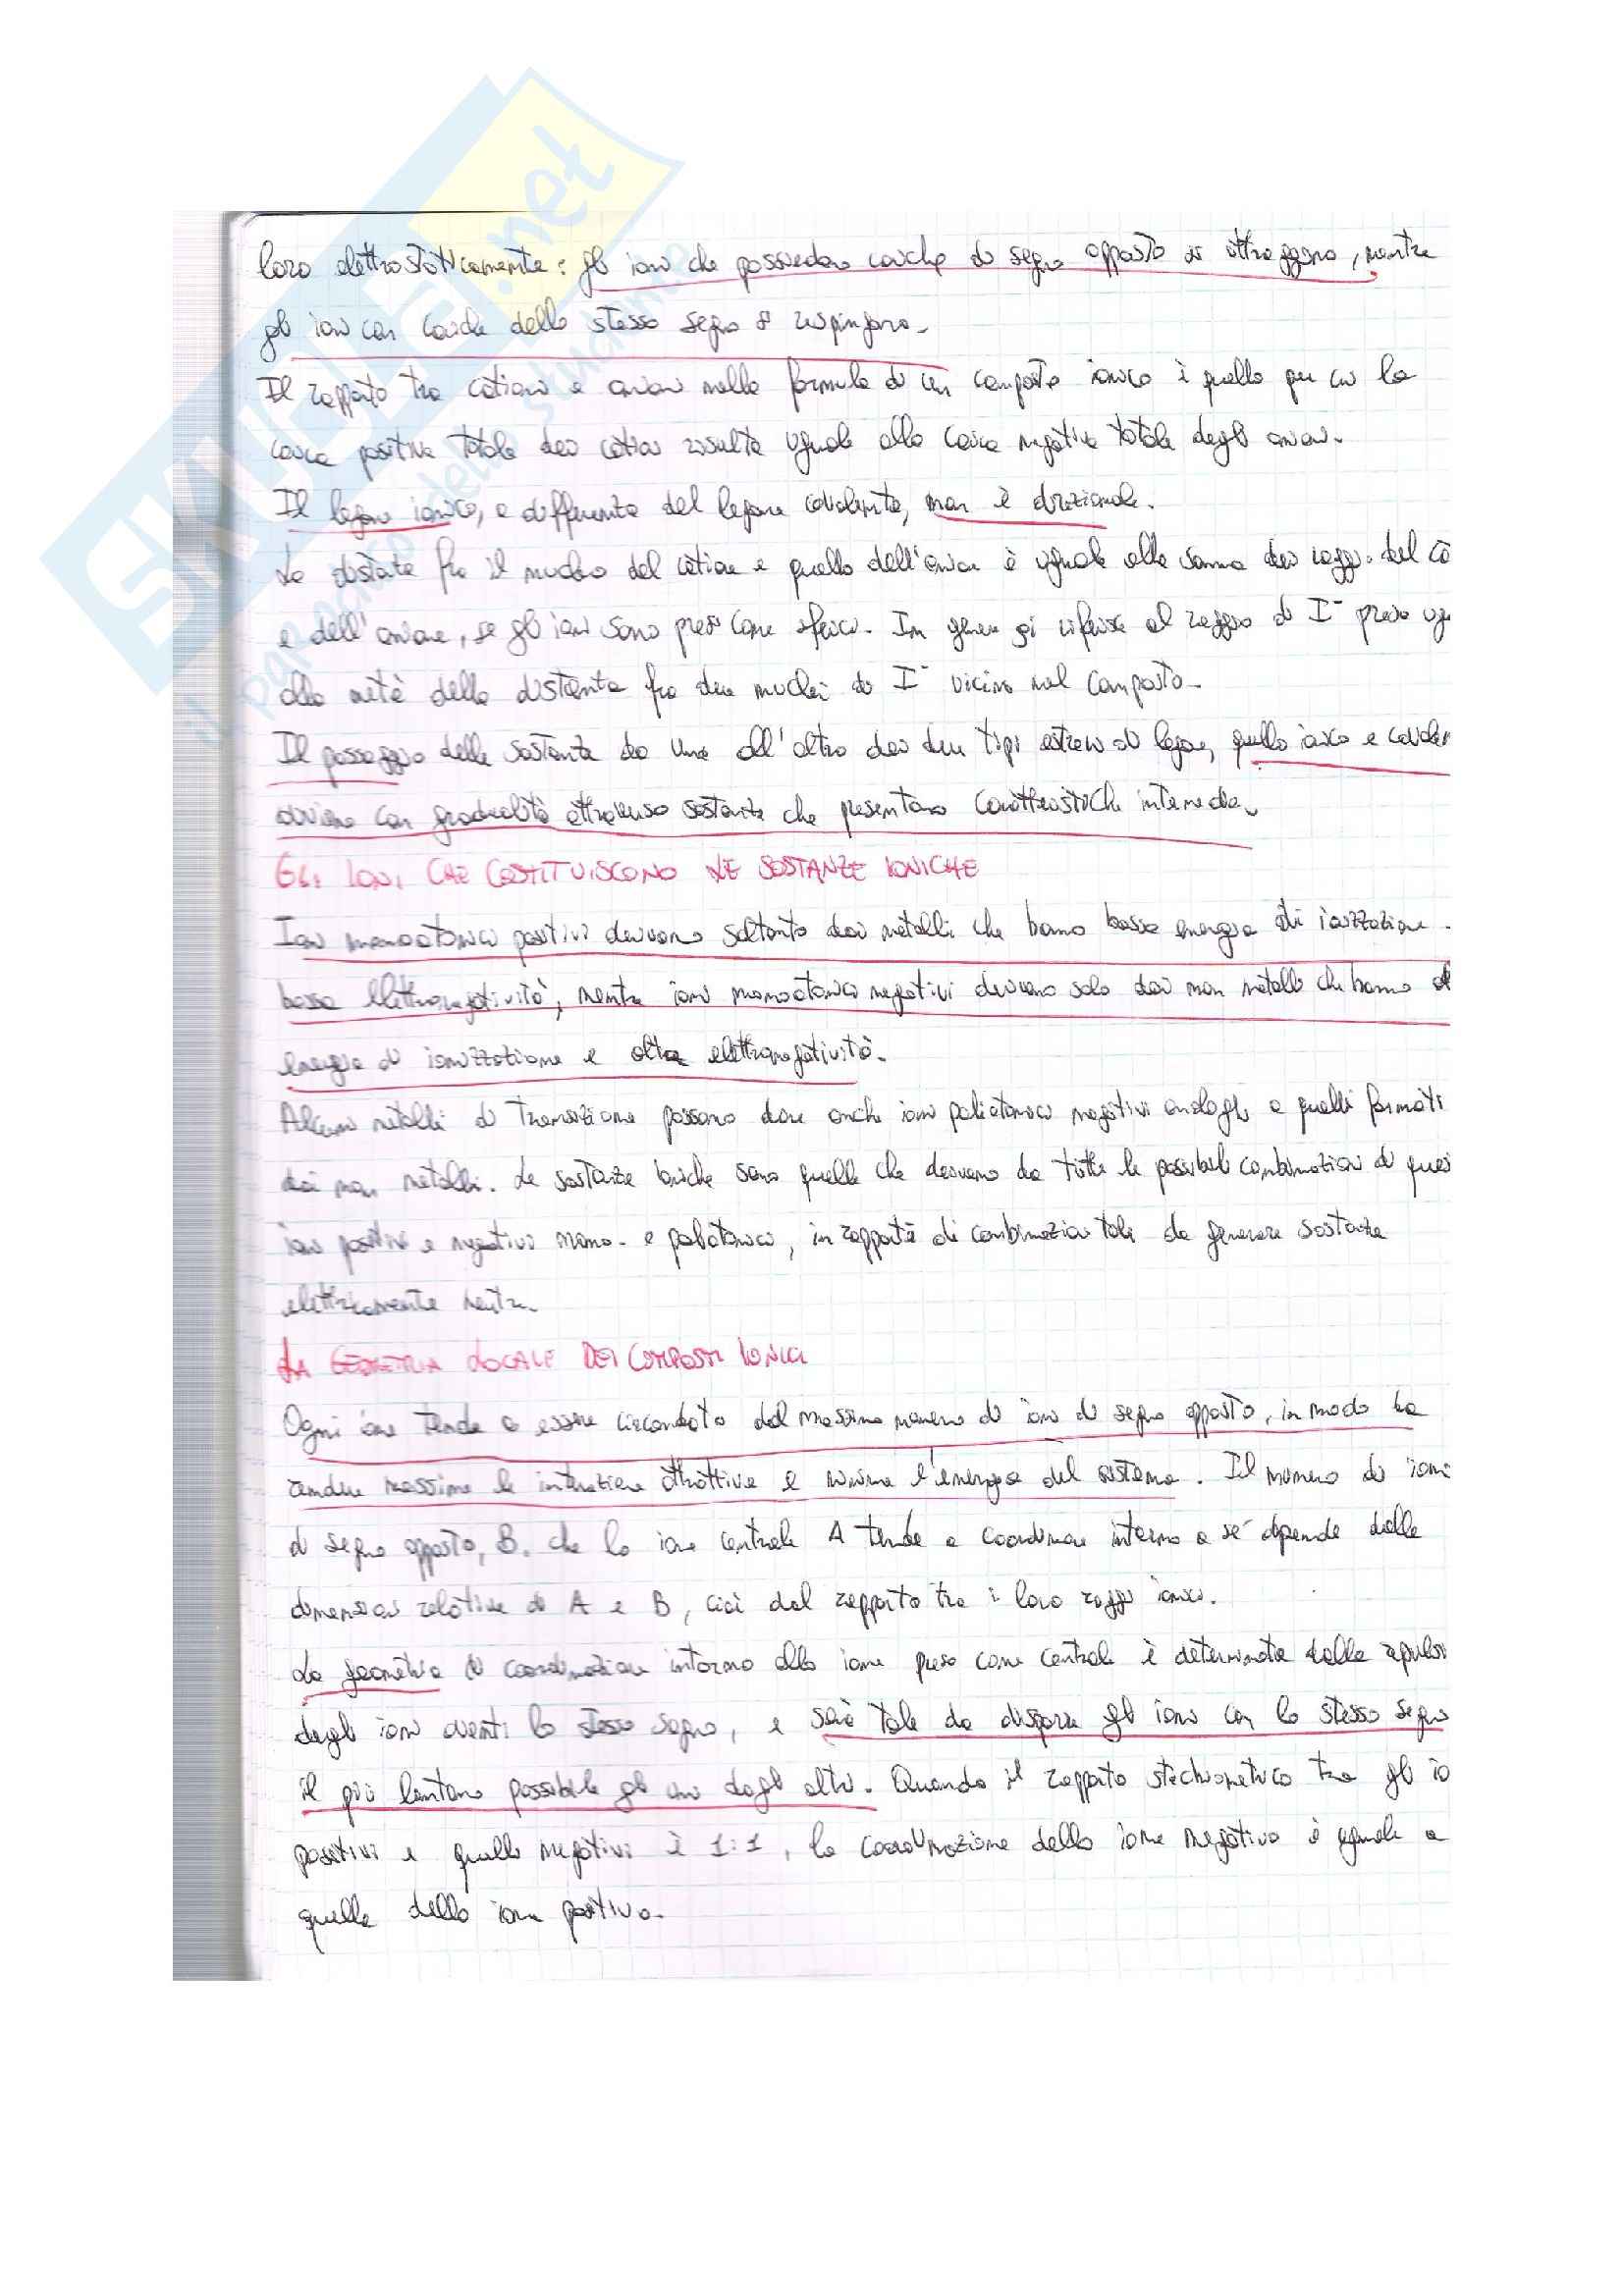 loro elettrostaticamente: gli ioni che possiedono cariche di segno opposto si attraggono, mentre
gli ioni con cariche dello stesso segno si respingono.
Il rapporto tra cationi e anioni nella formula di un composto ionico è quello per cui la
carica positiva totale dei cationi risulta uguale alla carica negativa totale degli anioni.
Il legame ionico, a differenza del legame covalente, non è direzionale.
La distanza fra il nucleo del catione e quello dell'anione è uguale alla somma dei raggi del ca
e dell'anione, se gli ioni sono presi come sferici. In genere si riferisce al raggio di I⁻ preso ug
alla metà della distanza fra due nuclei di I⁻ vicini nel composto.
Il passaggio delle sostanze da uno all'altro dei due tipi estremi di legame, quello ionico e covalen
avviene con gradualità attraverso sostanze che presentano caratteristiche intermedie.
GLI IONI CHE COSTITUISCONO LE SOSTANZE IONICHE
Ioni monoatomici positivi derivano soltanto dai metalli che hanno bassa energia di ionizzazione
bassa elettronegatività, mentre ioni monoatomici negativi derivano solo dai non metalli che hanno al
energia di ionizzazione e alta elettronegatività.
Alcuni metalli di transizione possono dare anche ioni poliatomici negativi analoghi a quelli formati
dai non metalli. Le sostanze ioniche sono quelle che derivano da tutte le possibili combinazioni di ques
ioni positivi e negativi mono- e poliatomici, in rapporti di combinazioni tali da generare sostanze
elettricamente neutre.
LA GEOMETRIA LOCALE DEI COMPOSTI IONICI
Ogni ione tende a essere circondato dal massimo numero di ioni di segno opposto, in modo da
rendere massime le interazioni attrattive e minima l'energia del sistema. Il numero di ioni
di segno opposto, B, che lo ione centrale A tende a coordinare intorno a sé dipende dalle
dimensioni relative di A e B, cioè dal rapporto tra i loro raggi ionici.
La geometria di coordinazione intorno allo ione preso come centrale è determinata dalla repulsi
degli ioni aventi lo stesso segno, e sarà tale da disporre gli ioni con lo stesso segno
il più lontano possibile gli uni dagli altri. Quando il rapporto stechiometrico tra gli io
positivi e quelli negativi è 1:1, la coordinazione dello ione negativo è uguale a
quella dello ione positivo.
SKUOLA.net